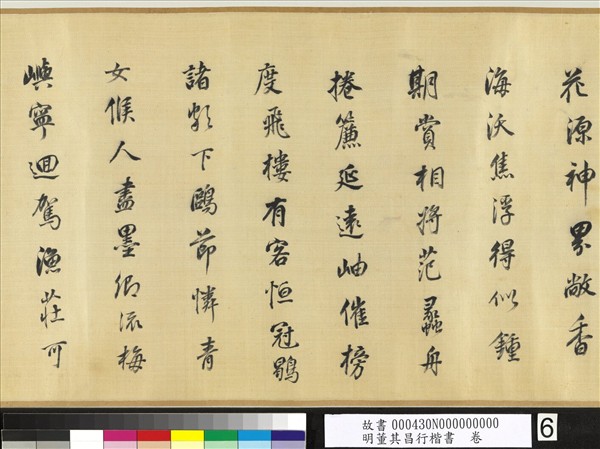 花源神界敞香
海沃焦浮得似鍾
期賞相將范蠡舟
捲簾延遠岫催榜
度飛樓有客恒冠鶡
諸彩下鷗節憐青
女候人盡墨卿流梅
嶼寧迴駕漁莊可
故書 000430N000000000
明董其昌行楷書 卷
6